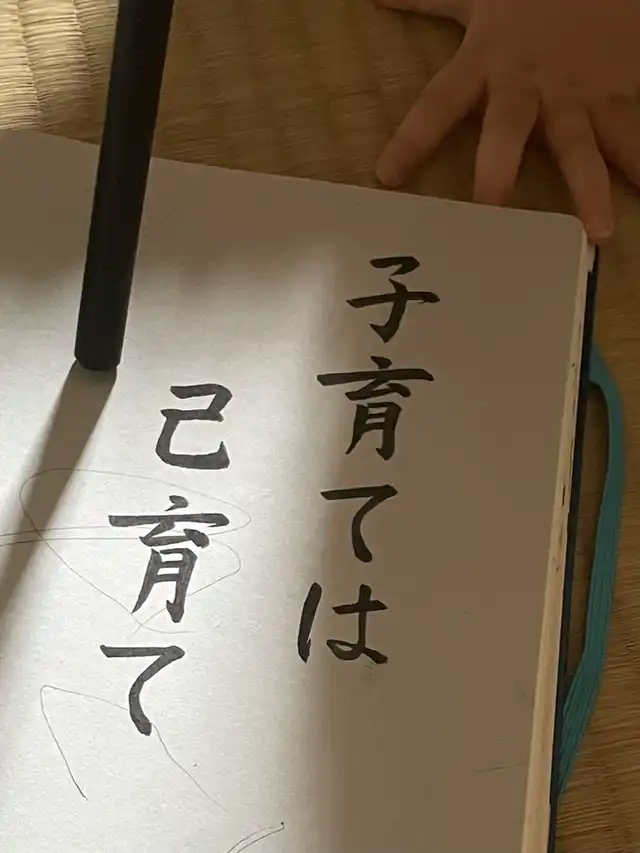 子育ては
己育て